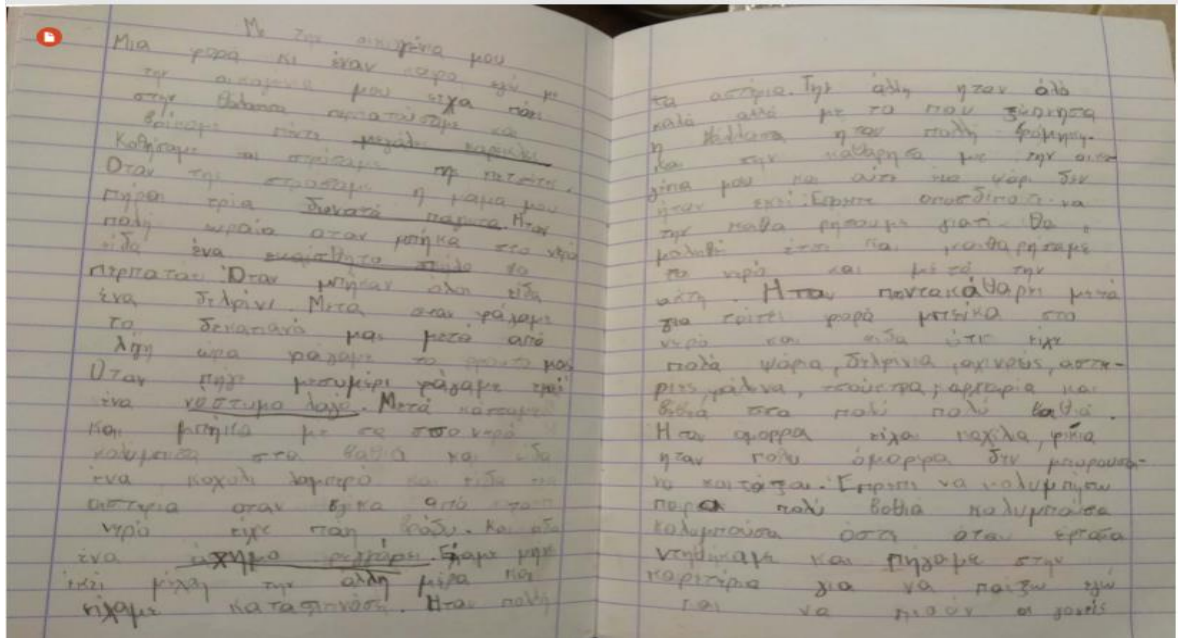 Με την οικιγένια μου
Μια φορά κι έναν καιρο εγώ με
την οικογένια μου είχα πάει
στην θάλασσα περπατούσαμε και
πέντε μεγάλες καρέκλες
Καθήσαμε και στρόσαμε της πετσέτες.
Όταν της στρόσαμε η μαμα μου
πήρει τρία παγωτα. Ηταν
πολή ωραία οταν μπήκα στο νερό
είδα ένα το
περπατάει. Όταν μπήκαν όλοι είδα
ένα δελφίνι. Μετα οταν φάγαμε
το δεκατιανό μας μετά από
λίγη ώρα φάγαμε το φρουτο μας
Όταν πήγε μεσυμέρι φάγαμε
ένα νοστυμο λαγό. Μετά κάτσαμε
και μπήκα με σα στο νερό
κολυμπισα στα βαθιά και είδα
ένα κοχυλι λαμπερό και είδα
αστερια οταν βγικα από στο
νερό είχε πάη βράδυ. Και είδα
ένα άχημο φεγγάρει. Είχαμε μήνη
εκεί μέχρη την άλλη μέρα και
είχαμε κατασκινόση. Ηταν πολλή
τα αστέρια. Την άλλη ηταν όλα
καλά αλλά με το που ξύπνησα
η θάλλασα ηταν πολλή βρόμηκη.
και την καθάρησα με την οικο-
γένια μου και αυτό το ψάρι δεν
ήταν εκεί. Επρεπε οποσδίποτε να
την καθα ρησουμε γιατί θα
μολυθή έτσι και καθαρήσαμε
το νερό και μετά την
ακτή. Ηταν πεντακάθαρη μετά
για τρίτει φορά μπείκα στο
νερό και είδα ότι είχε
πολά ψάρια, δελφίνια, αχινούς, αστε-
ριες, τσούχτρα, και
βιθιά στα πολύ πολύ βαθιά.
Ηταν ομορφα είχα κοχίλα, φίκια
ηταν πολυ όμορφα δεν μπωρουσα-
να κοιτάται. Επρεπε να κολυμπησω
παρα πολύ βαθιά κολυμπούσα
κολυμπούσα όστι όταν έφτασα
ντηθήκαμε και πήγαμε στην
καφετέρια για να παίξω εγώ
και να πιούν οι γονείς